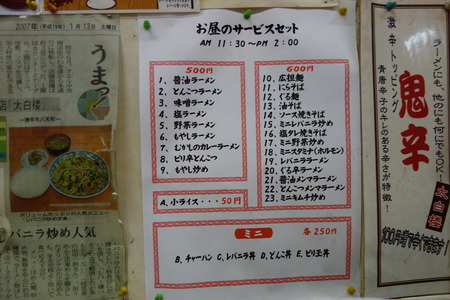 2007年(平成19年) 1月13日 土曜日
うまっ
店「太白楼」
ボリュームたっぷりの人気メニュー
バニラ炒め人気
お昼のサービスセット
AM 11:30~PM 2:00
500円
1、醤油ラーメン
2、とんこつラーメン
3、味噌ラーメン
4、塩ラーメン
5、野菜ラーメン
6、もやしラーメン
7、むかしのカレーラーメン
8、ピリ辛とんこつ
9、もやし炒め
A、小ライス・・・50円
600円
10、広担麺
11、にらそば
12、ぐる麺
13、油そば
14、ソース焼きそば
15、ミニレバニラ炒め
16、塩タレ焼きそば
17、ミニ野菜炒め
18、ミニスタミナ(ホルモン)
19、レバニララーメン
20、ぐる辛ラーメン
21、醤油メンマラーメン
22、とんこつメンマラーメン
23、ミニキムチ炒め
ミニ 各250円
B、チャーハン C、レバニラ丼 D、とんこ丼 E、ピリ玉丼
ラーメンにも、他のにも何にでもOK!
激辛トッピング
鬼辛
青唐辛子のキレのある辛さが特徴!
太白楼
100円増で今できます!